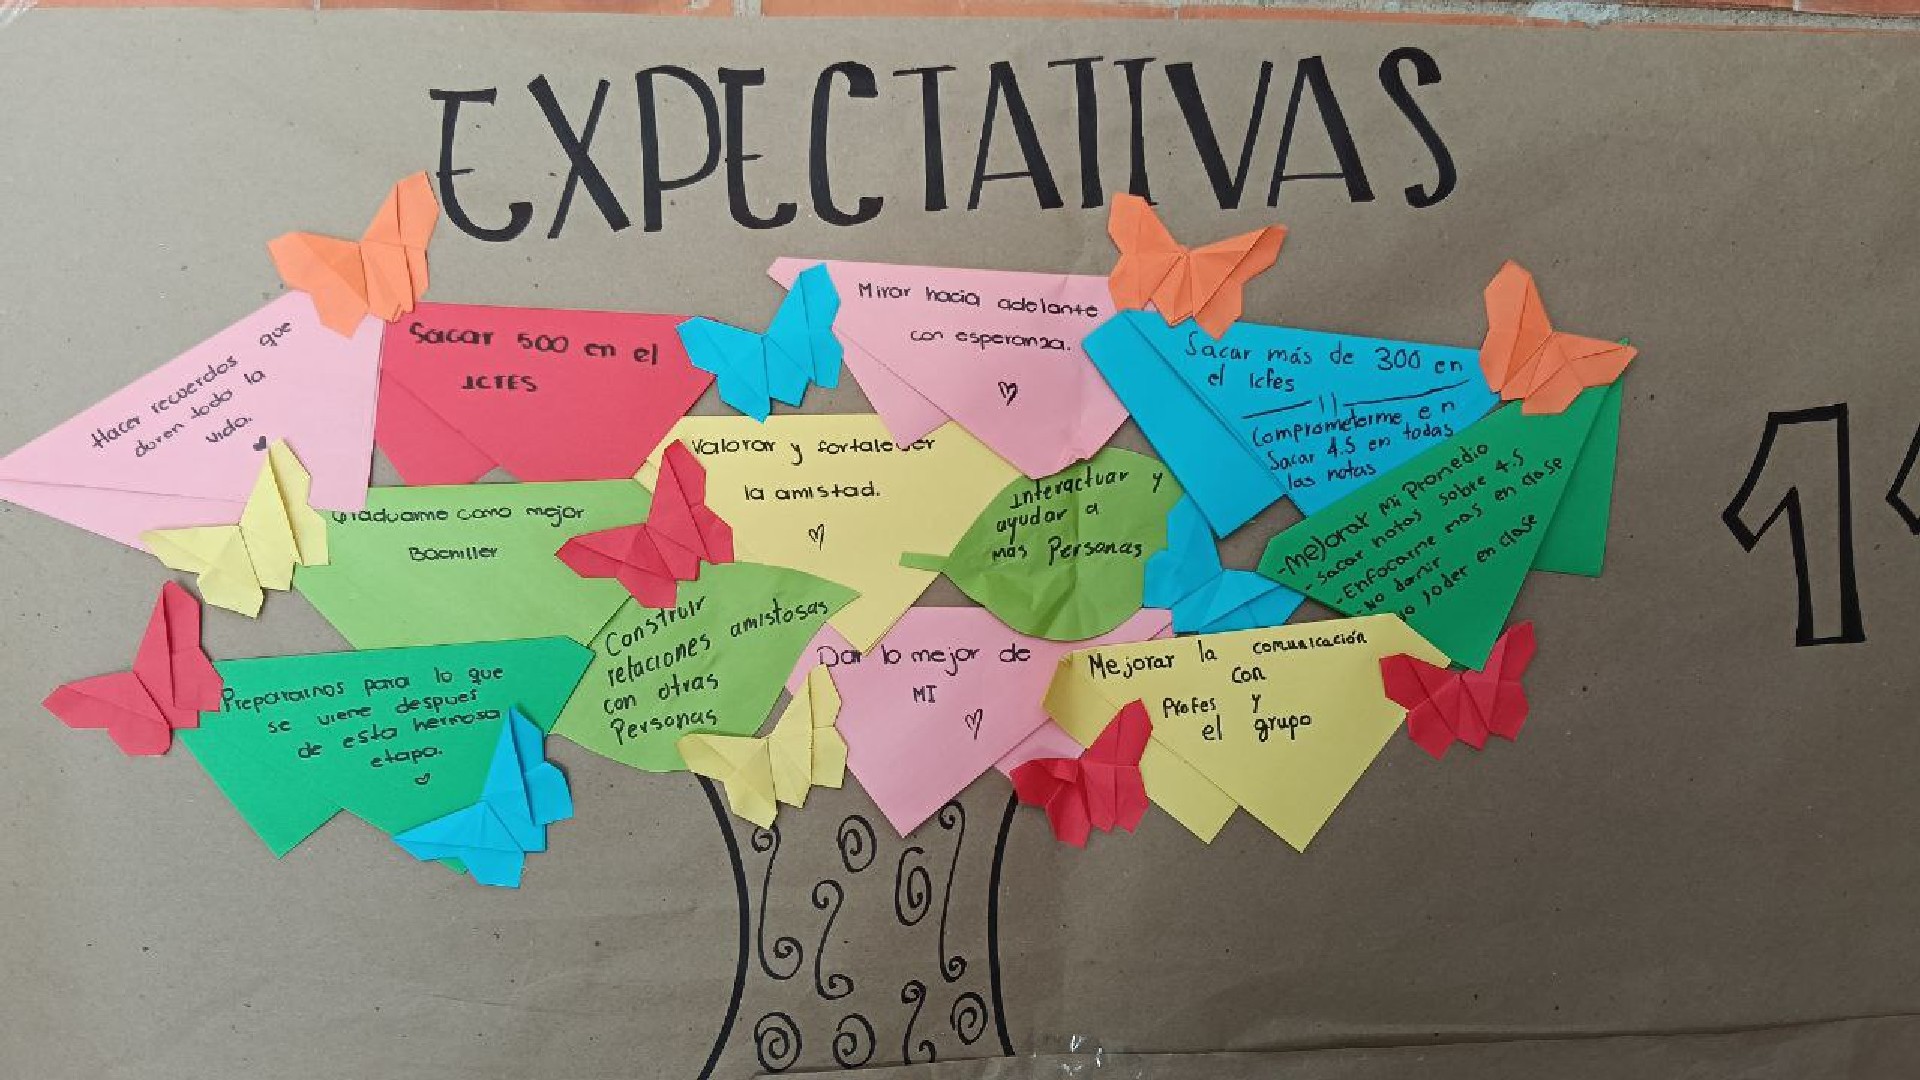 EXPECTATIVAS
Hacer recuerdos que
duren todo la
vida.
Sacar 500 en el
ICFES
Mirar hacia adelante
con esperanza.
Sacar más de 300 en
el Icfes
Comprometerme en
Sacar 4.5 en todas
las notas
Valorar y fortalecer
la amistad.
Interactuar y
ayudar a
mas Personas
-Mejorar mi Promedio
-sacar notas sobre 4.5
-Enfocarme mas en clase
-No dormir
No joder en clase
Graduarme como mejor
Bachiller
Construir
relaciones amistosas
con otras
Personas
Prepararnos para lo que
se viene despues
de esta hermosa
etapa.
Dar lo mejor de
MI
Mejorar la comunicación
con
Profes y
el grupo
11